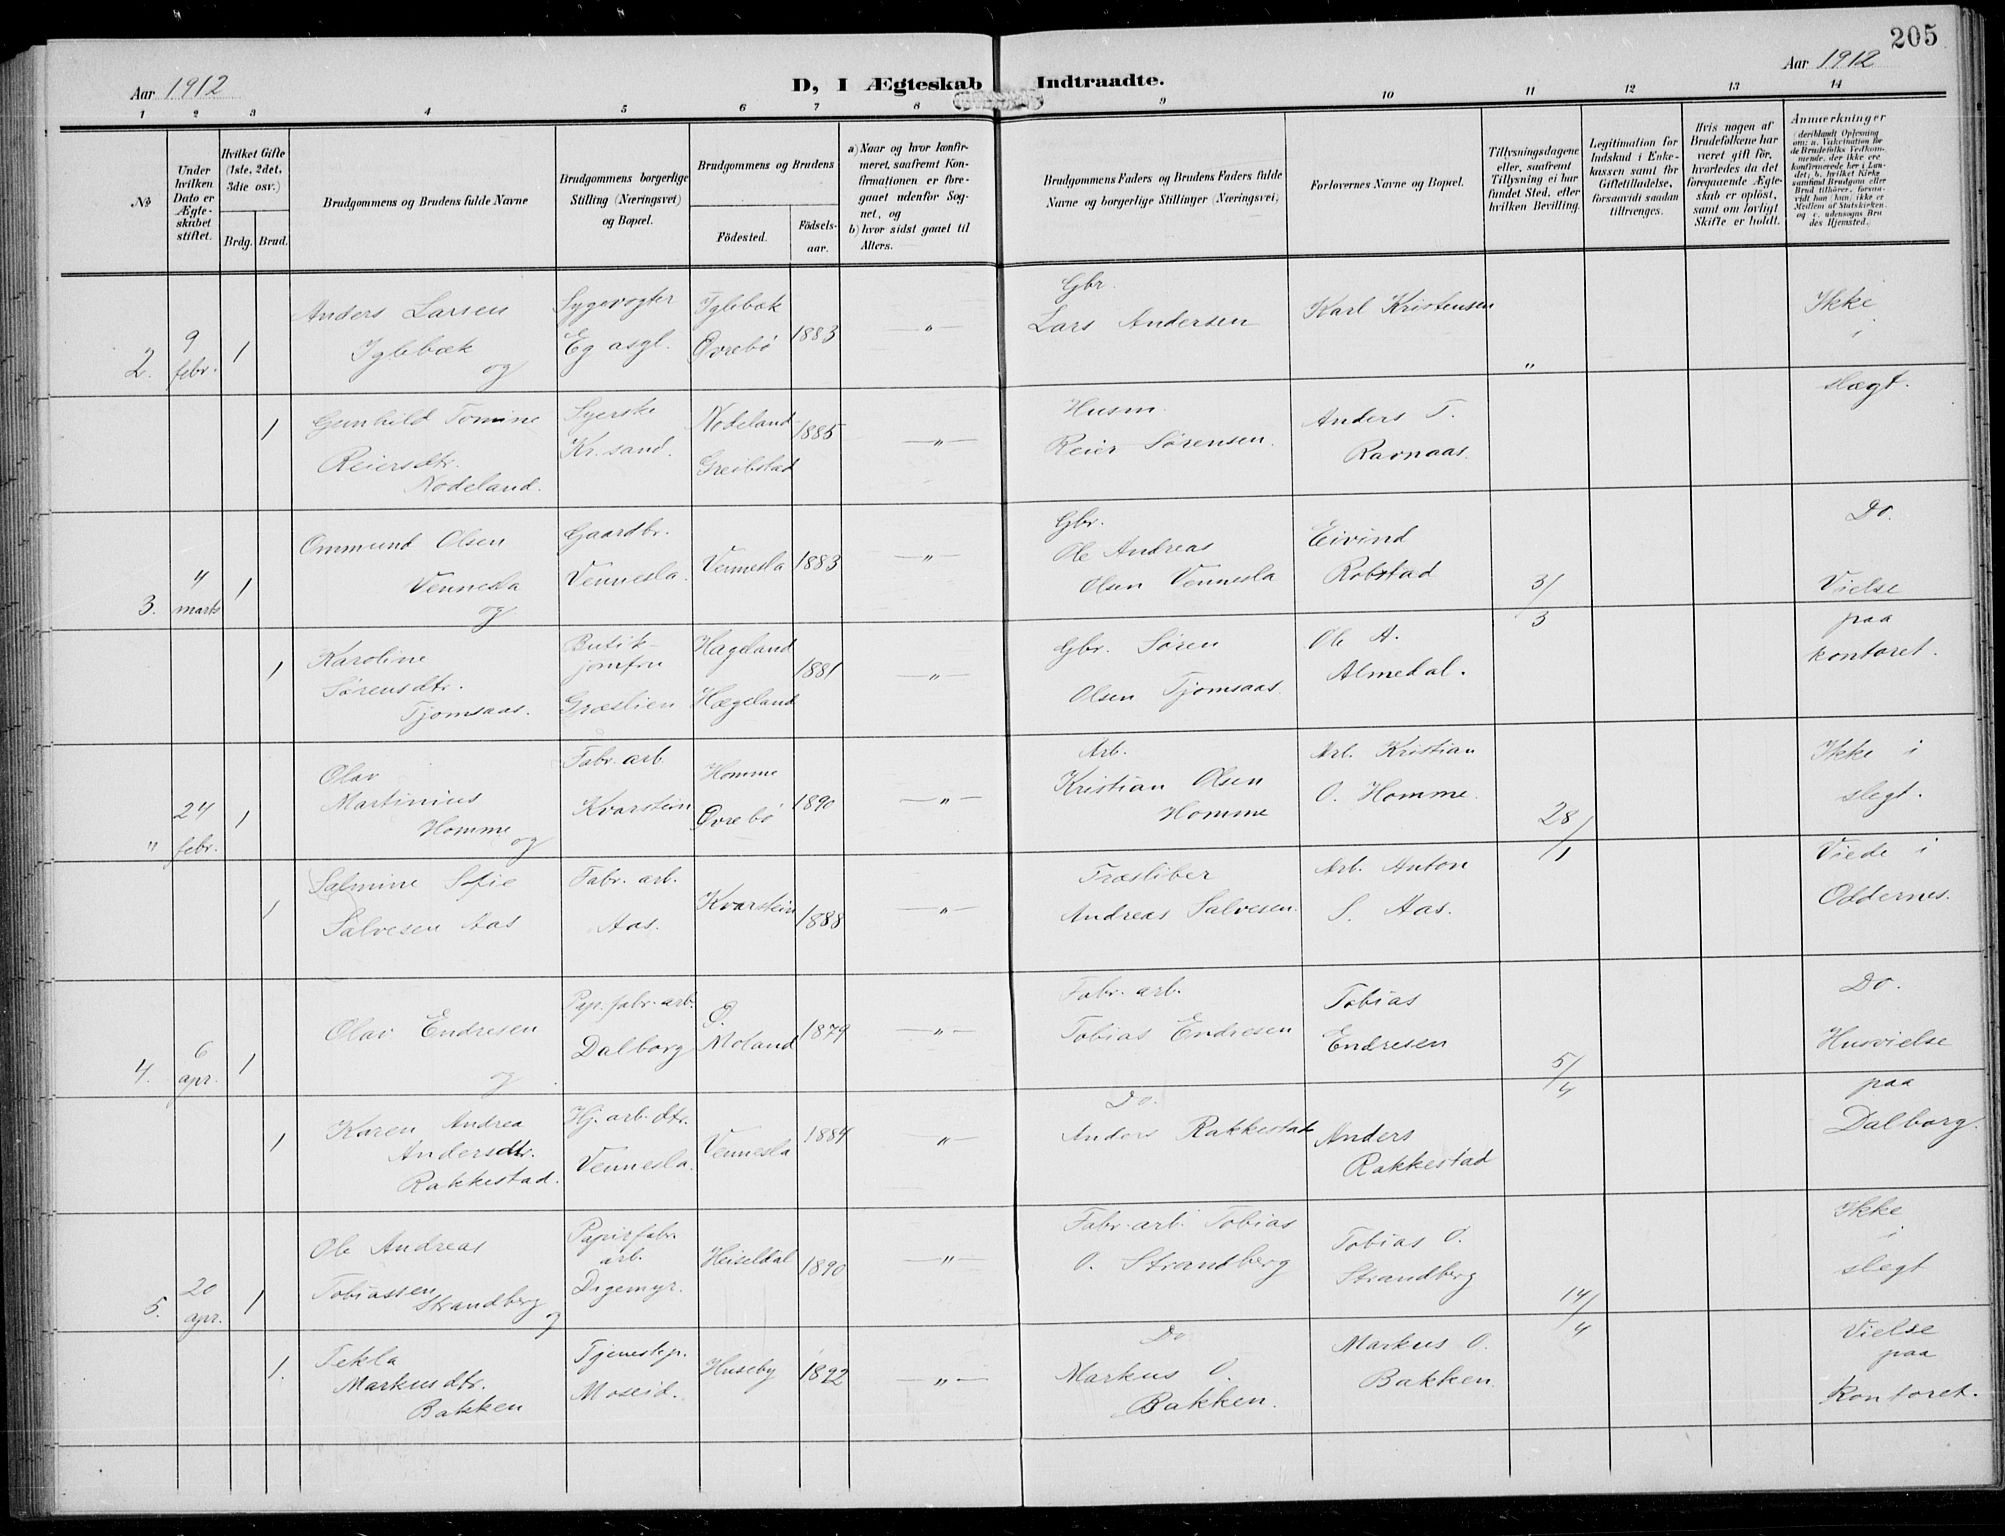 205
Aar 1912
D, I Ægteskab Indtraadte.
Aar 1912
1 2 3 4 5 6 7 8 9 10 11 12 13 14
No
Under hvilken Dato er Ægteskabet stiftet.
Hvilket Gifte (1ste, 2det, 3die osv.)
Brdg. Brud.
Brudgommens og Brudens fulde Navne
Brudgommens borgerlige Stilling (Næringsvei) og Bopæl.
Brudgommens og Brudens
Födested. Födselsaar.
a) Naar og hvor konfirmeret, saafremt Konfirmationen er foregaaet udenfor Sognet, og
b) hvor sidst gaaet til Alters.
Brudgommens Faders og Brudens Faders fulde Navne og borgerlige Stillinger (Næringsvei)
Forlovernes Navne og Bopæl.
Tillysningsdagene eller, saafremt Tillysning ei har fundet Sted, efter hvilken Bevilling.
Legitimation for Indskud i Enkekassen samt for Giftetilladelse, forsaavidt saadan tiltrænges.
Hvis nogen af Brudefolkene har været gift för, hvorledes da det foregaaende Ægteskab er oplöst, samt om lovligt Skifte er holdt.
Anmærkninger (deriblandt Oplysning om: a. Vakcination for de Brudefolks Vedkommende, der ikke ere konfirmerede her i Landet; b. hvilket Kirkesamfund Brudgom eller Brud tilhörer, forsaavidt han (hun) ikke er Medlem af Statskirken, og c. udensogns Brudes Hjemsted.)
2. 9 febr. 1 Anders Larsen Iglebæk og
Sygevogter Eg asyl.
Iglebæk Øvrebö 1883 "
Gbr. Lars Andersen
Karl Kristensen
"
Ikke i slægt.
1 Gunhild Tomine Reiersdtr. Nodeland.
Syerske Kr.sand.
Nodeland Greibstad 1885 "
Husm. Reier Sørensen.
Anders T. Ravnaas.
3. 4 marts 1 Ommund Olsen Vennesla og
Gaardbr. Vennesla.
Vennesla 1883 "
Gbr. Ole Andreas Olsen Vennesla
Eivind Robstad
3/3
Do. Vielse paa kontoret.
1 Karoline Sørensdtr. Tjomsaas.
Butikjomfru Græslien
Hageland Hægeland 1881 "
Gbr. Søren Olsen Tjomsaas.
Ole A. Almedal.
" 24 febr. 1 Olav Martinius Homme og
Fabr. arb. Kvarstein
Homme Øvrebö 1890 "
Arb. Kristian Olsen Homme
Arb. Kristian O. Homme.
28/1
Ikke i slegt. Viede i Oddernes.
1 Salmine Sofie Salvesen Aas
Fabr. arb. Aas.
Kvarstein 1888 "
Træsliber Andreas Salvesen.
Arb. Anton S. Aas.
4. 6 apr. 1 Olav Endresen og
Pap. fabr. arb. Dalborg
Ø. Moland 1879 "
Fabr. arb. Tobias Endresen
Tobias Endresen
5/4
Do. Husvielse paa Dalborg.
1 Karen Andrea Andersdtr. Rakkestad.
Hj. arb. dtr. Vennesla.
Vennesla 1884 "
Do. Anders Rakkestad
Anders Rakkestad
5. 20 apr. 1 Ole Andreas Tobiassen Strandberg og
Papirfabr. arb. Digemyr.
Heiseldal 1890 "
Fabr. arb. Tobias O. Strandberg
Tobias O. Strandberg
14/4
Ikke i slegt Vielse paa kontoret.
1. Tekla Markusdtr. Bakken
Tjenestep. Moseid.
Huseby 1892 "
Do Markus O. Bakken.
Markus O. Bakken.